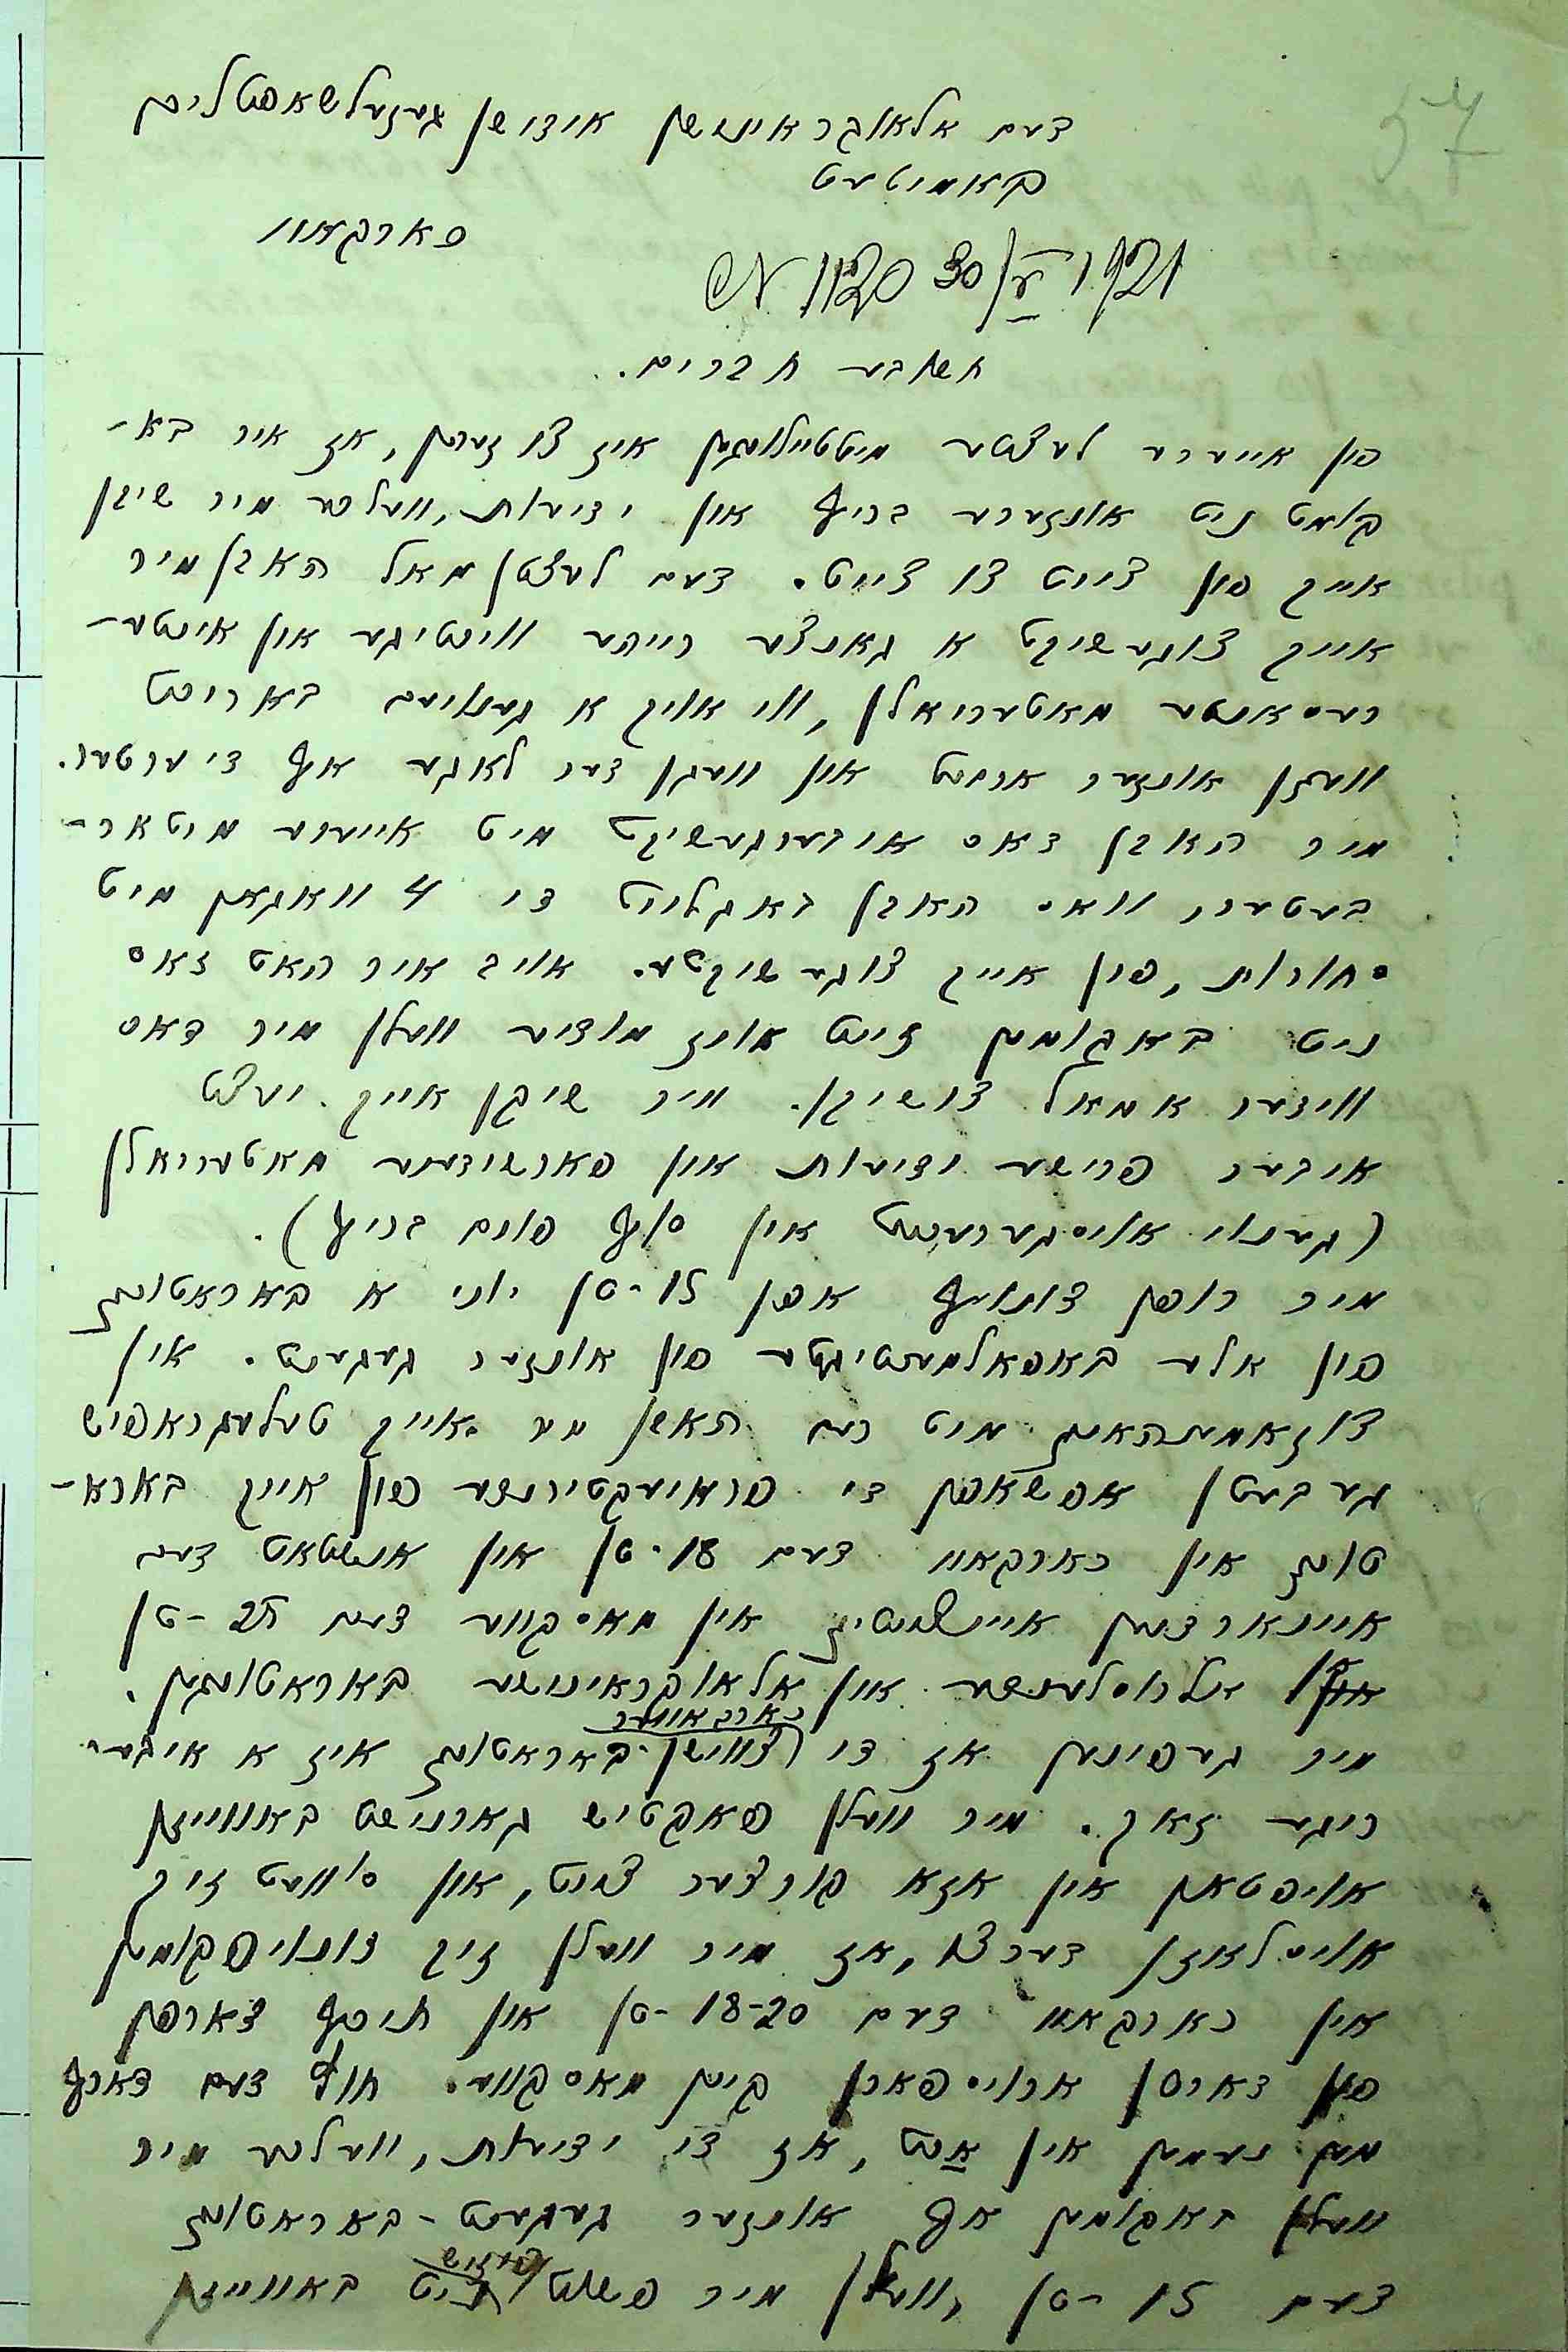 57
דעם אלאוקראינישן אידישן געזעלשאפטליכן
קאמיטעט
כארקאוו
N 1120 30/V 1921
חשובע חברים.
פון אייערע לעצטע מיטטיילונגען איז צו זעהן, אז איר בא-
קומט ניט אונזערע בריף און ידיעות, וועלכע מיר שיקן
אייך פון צייט צו צייט. דעם לעצטן מאל האבן מיר
אייך צוגעשיקט א גאנצע רייהע וויכטיגע און אינטע-
רעסאנטע מאטעריאלן, ווי אויך א גענויעם באריכט
וועגן אונזער ארבייט און וועגן דער לאגע אף די ערטער.
מיר האבן דאס איבערגעשיקט מיט אייערע מיטאר-
בעטער וואס האבן באגלייט די 4 וואגאנען מיט
סחורות, פון אייך צוגעשיקטע. אויב איר האט דאס
ניט באקומען זייט אונז מודיע וועלן מיר דאס
ווידער אמאל צושיקן. מיר שיקן אייך יעצט
איבער פרישע ידיעות און פארשידענע מאטעריאלן
(גענוי אויסגערעכנט אין סוף פונם בריף).
מיר רופן צונויף אפן 15-טן יוני א באראטונג
פון אלע באפאלמעכטיגטע פון אונזער געגענט. אין
צוזאמענהאנג מיט דעם האבן מיר אייך טעלעגראפיש
געבעטן אפשאפן די פראיעקטירטע פון אייך בארא-
טונג אין כארקאוו דעם 18-טן און אנשטאט דעם
איינארדענען איינצייטיג אין מאסקווע דעם 25-טן
אלרוסלענדישע און אלאוקראינישע באראטונגען.
מיר געפינען אז די כארקאווער צווישן-באראטונג איז א איבע-
ריגע זאך. מיר וועלן פאקטיש גארנישט באווייזן
אויפטאן אין אזא קורצער צייט, און סוועט זיך
אויסלאזן דערצו, אז מיר וועלן זיך צונויפקומען
אין כארקאוו דעם 18-20-טן און תיכף דארפן
פון דארטן ארויספארן קיין מאסקווע. חוץ דעם דארף
מען נעמען אין אכט, אז די ידיעות, וועלכע מיר
וועלן באקומען אף אונזער געגענט-באראטונג
דעם 15-טן, וועלן מיר פשוט פיזיש ניט באווייזן